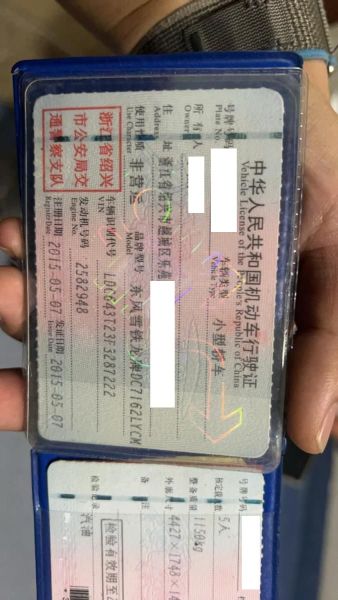 中华人民共和国机动车行驶证
Vehicle License of the People's Republic of China
号牌号码
Plate No.
车辆类型 小型轿车
Vehicle Type
所有人
Owner
住址 浙江省绍兴市越城区
Address
使用性质 非营运
Use Character
品牌型号 东风雪铁龙牌DC7162LYCM
Model
浙江省绍兴
市公安局交
通警察支队
车辆识别代号 LDC643T23F3287222
VIN
发动机号码 2582948
Engine No.
注册日期 2015-05-07
Register Date
发证日期 2015-05-07
Issue Date
号牌号码
核定载人数 5人
整备质量 1150kg
外廓尺寸 4427×1748×14
备注
检验有效期至
检验记录
汽油